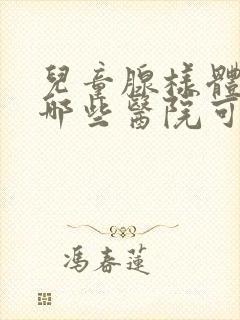 兒童腺樣體
哪些醫院可
馮春蓮